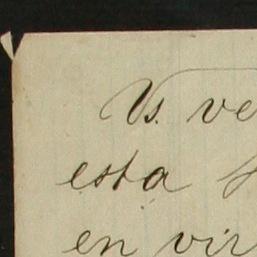 Vs. ve
esta
en vir